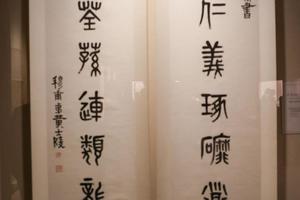 書
仁義琢磨
荃蓀連類
穆甫弟黄士陵